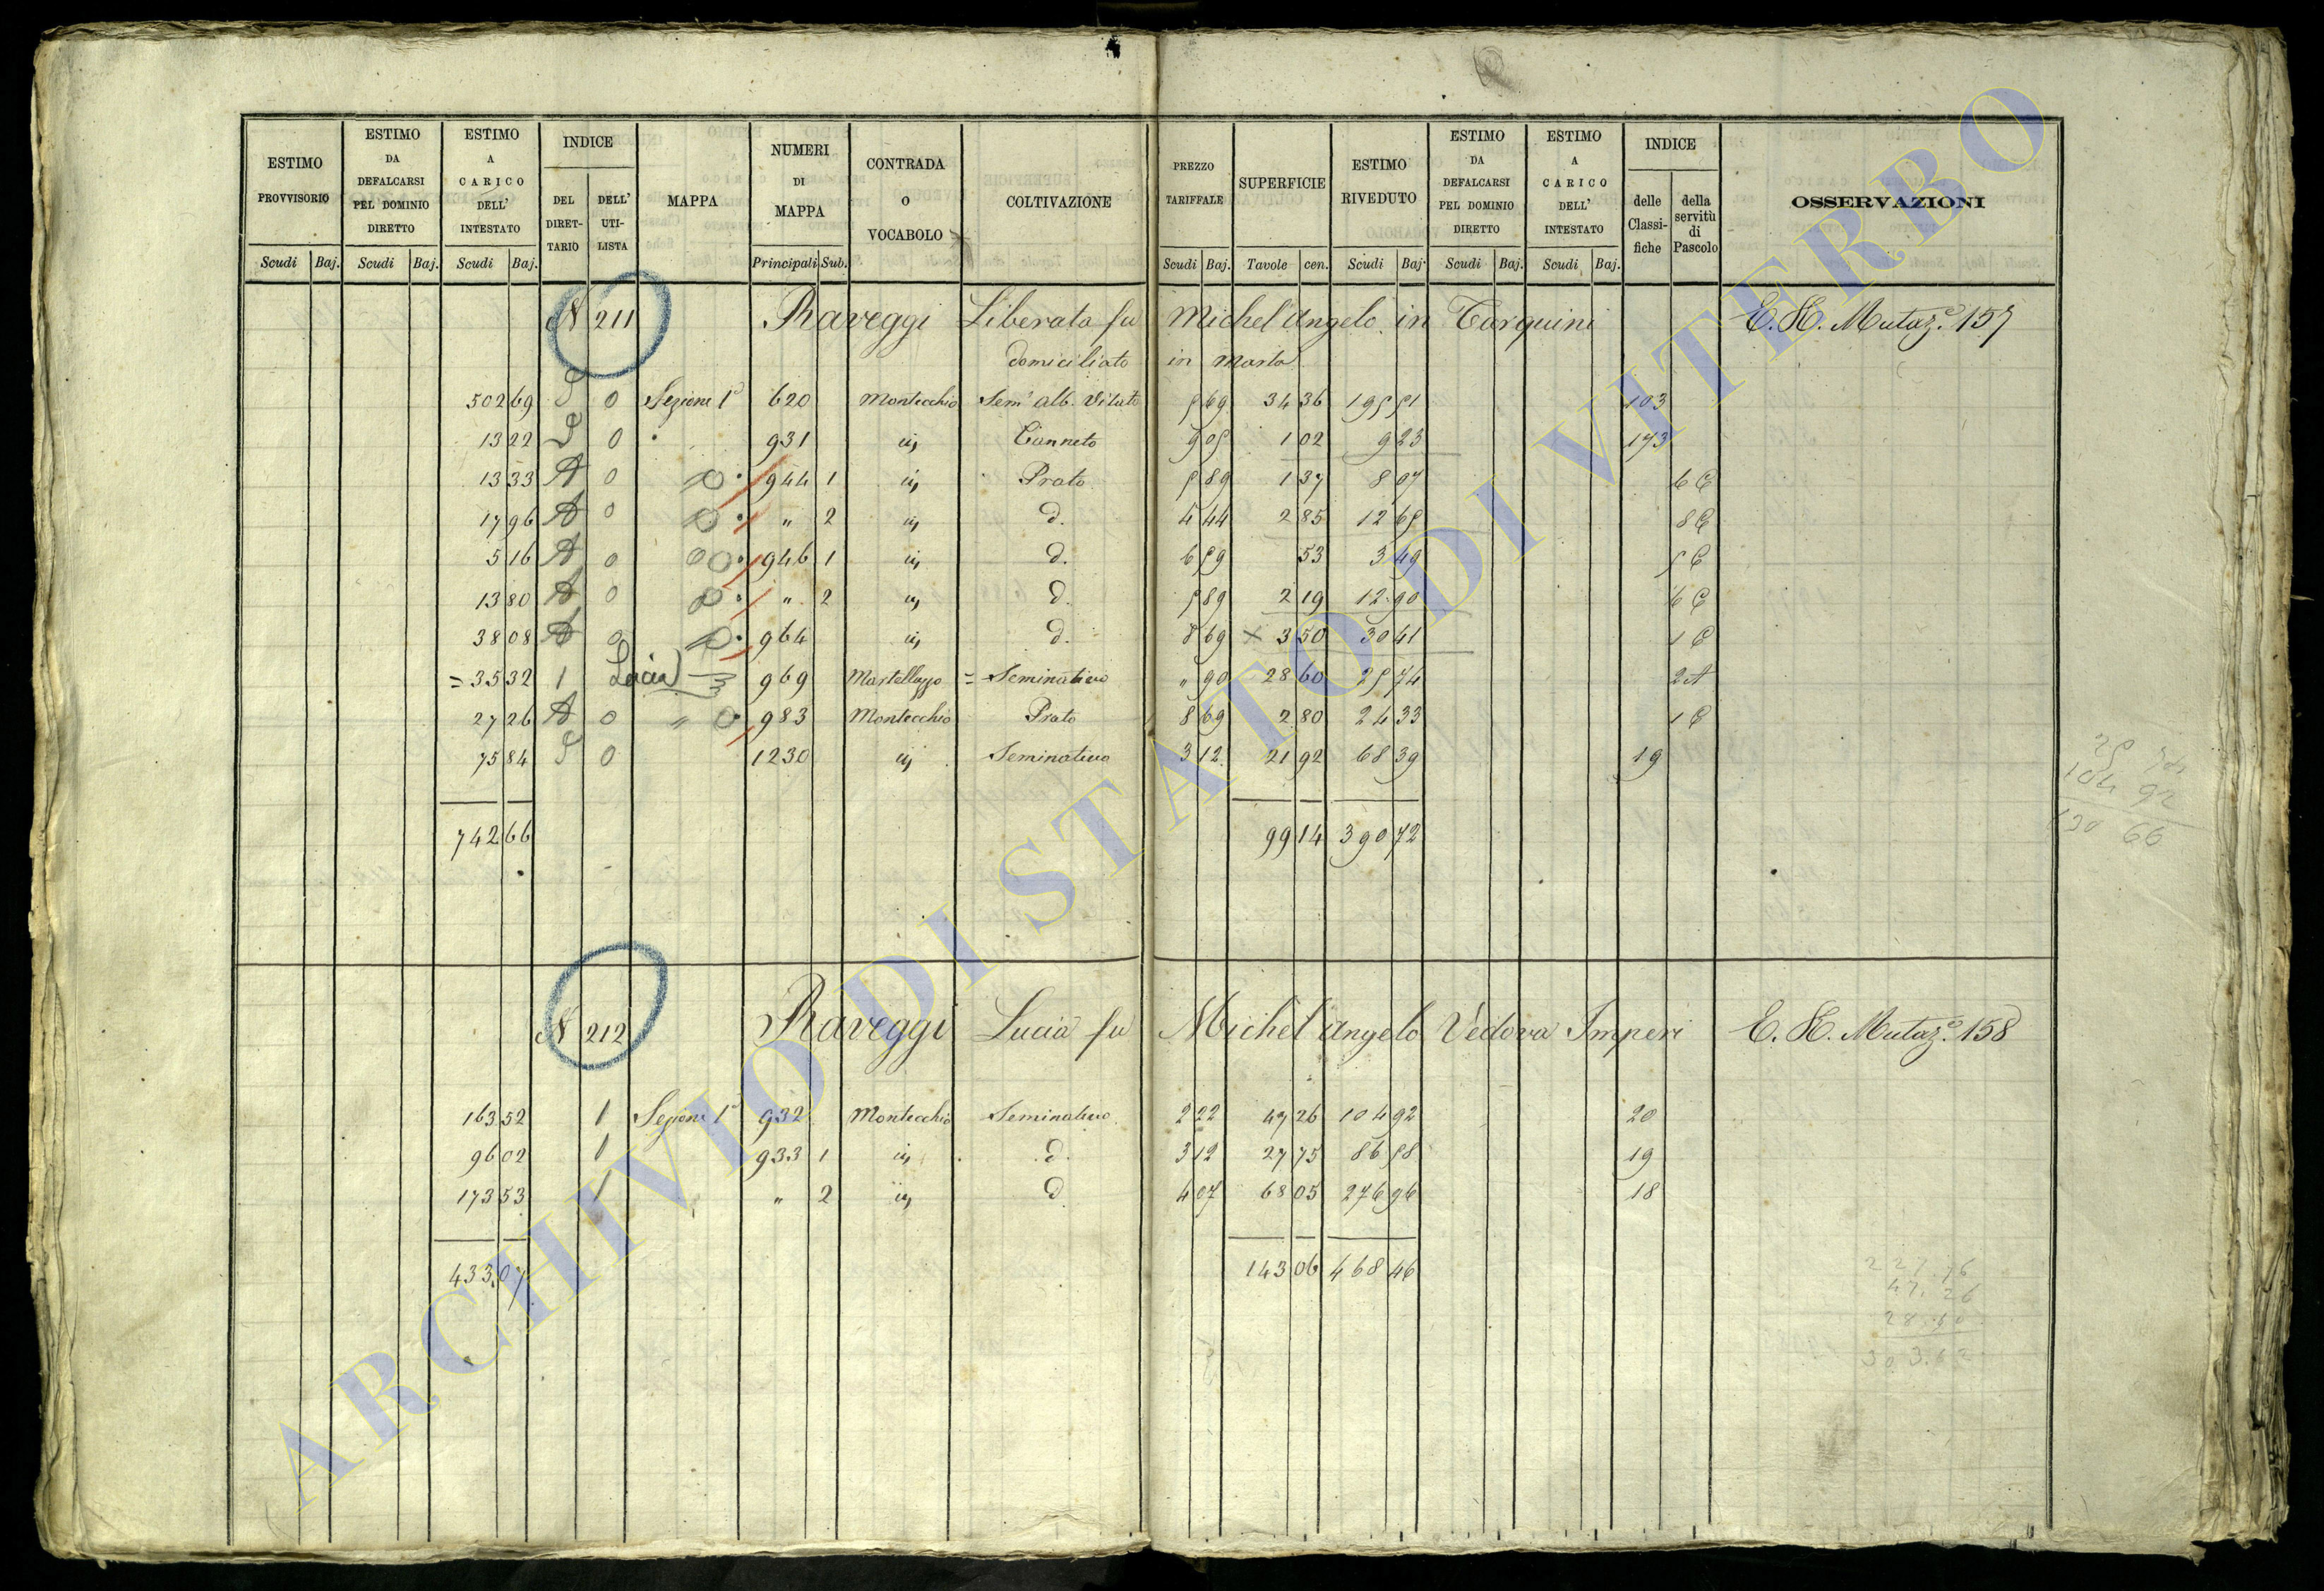 ESTIMO PROVVISORIO Scudi Baj.
ESTIMO DA DEFALCARSI PEL DOMINIO DIRETTO Scudi Baj.
ESTIMO A CARICO DELL' INTESTATO Scudi Baj.
INDICE DEL DIRETTARIO DELL' UTILISTA
MAPPA
NUMERI DI MAPPA Principali Sub.
CONTRADA O VOCABOLO
COLTIVAZIONE
PREZZO TARIFFALE Scudi Baj.
SUPERFICIE Tavole cen.
ESTIMO RIVEDUTO Scudi Baj.
ESTIMO DA DEFALCARSI PEL DOMINIO DIRETTO Scudi Baj.
ESTIMO A CARICO DELL' INTESTATO Scudi Baj.
INDICE delle Classifiche della servitù di Pascolo
OSSERVAZIONI
N 211 Raveggi Liberata fu Michel'Angelo in Tarquini E. H. Mutaz.e 157
domiciliato in Marta
502 69 0 Sezione 1a 620 Montecchio Sem.o Alb. Vitato 5 69 34 36 195 51 103
13 22 0 931 id Canneto 9 05 1 02 9 23 173
13 33 A 0 944 1 id Prato 5 89 1 37 8 07 6 C
17 96 A 0 " 2 id d. 4 44 2 85 12 65 8 C
5 16 A 0 946 1 id d. 6 59 53 3 49 5 C
13 80 A 0 " 2 id d. 5 89 2 19 12 90 6 C
38 08 A 0 964 id d. 8 69 x 3 50 30 41 1 C
= 35 32 1 Lucia 969 Martellazzo = Seminativo " 90 28 60 25 74 2 A
27 26 A 0 " 983 Montecchio Prato 8 69 2 80 24 33 1 C
75 84 0 1230 id Seminativo 3 12 21 92 68 39 19
742 66 99 14 390 72
25 74
104 92
130 66
N 212 Raveggi Lucia fu Michel'Angelo Vedova Imperi E. H. Mutaz.e 158
163 52 1 Sezione 1a 932 Montecchio Seminativo 2 22 47 26 104 92 20
96 02 1 933 1 id d. 3 12 27 75 86 58 19
173 53 1 " 2 id d 4 07 68 05 276 96 18
433 07 143 06 468 46
47.26
28.60
ARCHIVIO DI STATO DI VITERBO